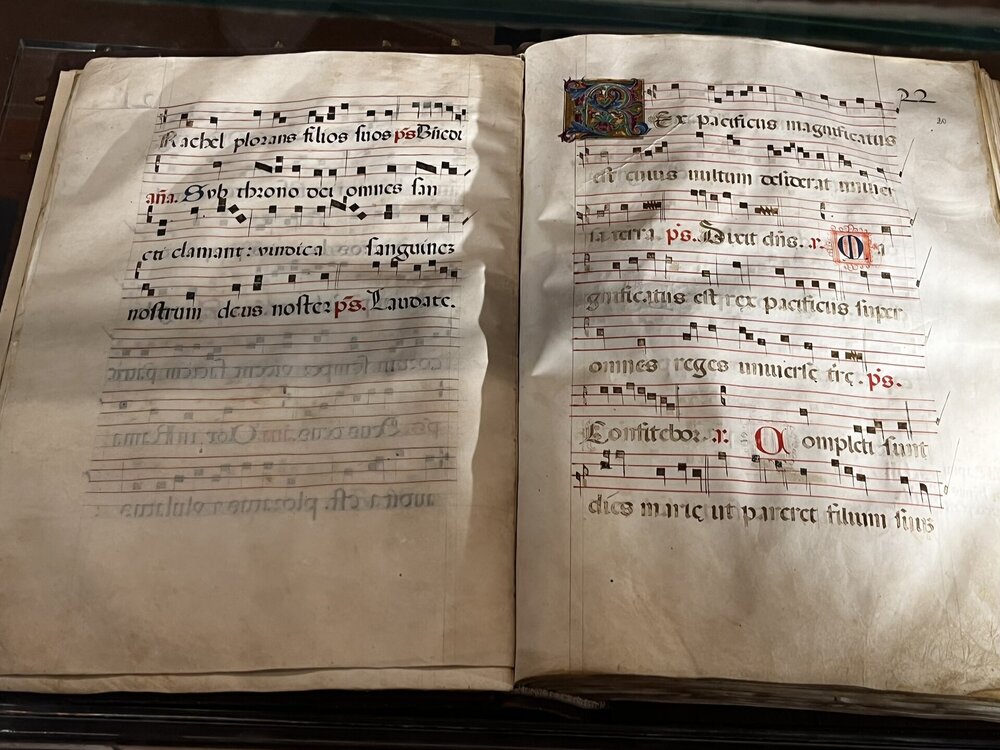 Rachel plorans filios suos ps Bñcdi
aña. Svb throno dei omnes san
cti clamant: vindica sanguinez
nostrum deus noster ps. Laudate.
22
20
REx pacificus magnificatus
est cuius uultum desiderat uniuer
sa terra. ps. Dixit dñs. a. M a
gnificatus est rex pacificus super
omnes reges uniuerse tre. ps.
Confitebor. a. Completi sunt
dies marie ut pareret filium suus